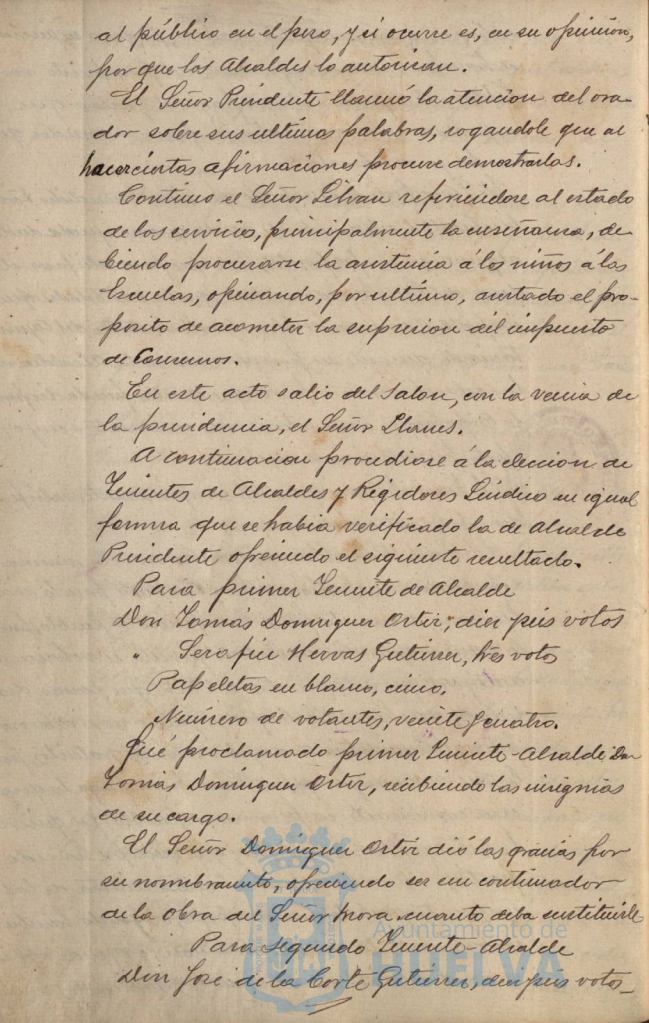 al público en el peso, y si ocurre es, en su opinión,
por que los Alcaldes lo autorizan.
El Señor Presidente llamó la atencion del ora-
dor sobre sus ultimas palabras, rogandole que al
hacer ciertas afirmaciones procure demostrarlas.
Continuo el Señor refiriendose al estado
de los servicios, principalmente la enseñanza, de-
biendo procurarse la asistencia á los niños á las
Escuelas, opinando, por ultimo, acertado el pro-
posito de acometer la supresion del impuesto
de Consumos.
En este acto salio del Salon, con la venia de
la presidencia, el Señor Llanes.
A continuacion procediose á la eleccion de
Tenientes de Alcaldes y Regidores Sindico en igual
forma que se habia verificado la de Alcalde
Presidente ofreciendo el siguiente resultado.
Para primer Teniente de Alcalde
Don Tomás Dominguez Ortiz, diez y seis votos
" Serafin Hervas Gutierrez, tres votos
Papeletas en blanco, cinco.
Número de votantes, veinte y cuatro.
Fué proclamado primer Teniente-Alcalde Don
Tomás Dominguez Ortiz, recibiendo las insignias
de su cargo.
El Señor Dominguez Ortiz dió las gracias por
su nombramiento, ofreciendo ser un continuador
de la obra del Señor Mora cuanto deba sustituirle
Para segundo Teniente-Alcalde
Don José de la Corte Gutierrez, diez y seis votos-
Ayuntamiento de
HUELVA